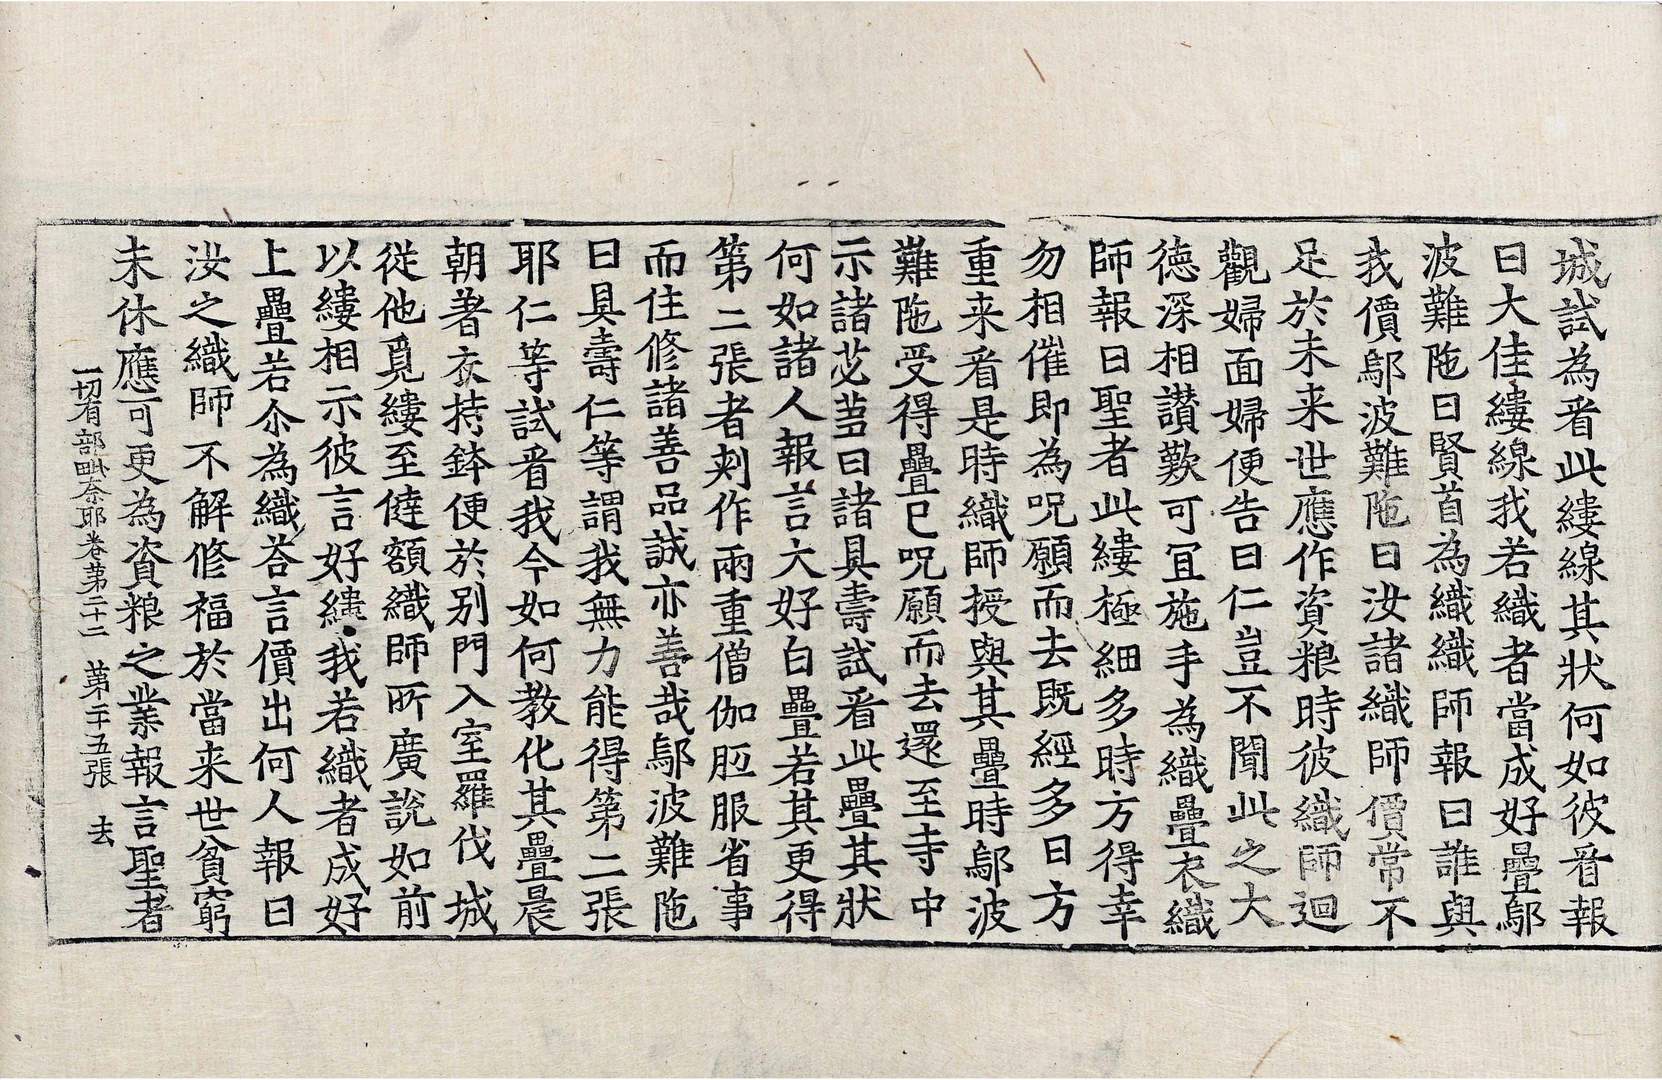 城試為看此縷線其狀何如彼看報
曰大佳縷線我若織者當成好疊鄔
波難陁曰賢首為織織師報曰誰與
我價鄔波難陁曰汝諸織師價常不
足於未来世應作資粮時彼織師迴
觀婦面婦便告曰仁豈不聞此之大
德深相讚歎可冝施手為織疊衣織
師報曰聖者此縷極細多時方得幸
勿相催即為呪願而去既經多日方
重来看是時織師授與其疊時鄔波
難陁受得疊已呪願而去還至寺中
示諸苾蒭曰諸具壽試看此疊其狀
何如諸人報言大好白疊若其更得
第二張者刾作兩重僧伽胝服省事
而住修諸善品誠亦善哉鄔波難陁
曰具壽仁等謂我無力能得第二張
耶仁等試看我今如何教化其疊晨
朝著衣持鉢便於别門入室羅伐城
從他覓縷至㒓額織師所廣說如前
以縷相示彼言好縷我若織者成好
上疊若尒為織荅言價出何人報曰
汝之織師不解修福於當来世貧窮
未休應可更為資粮之業報言聖者
一切有部毗奈耶卷第二十二　第二十五張　去